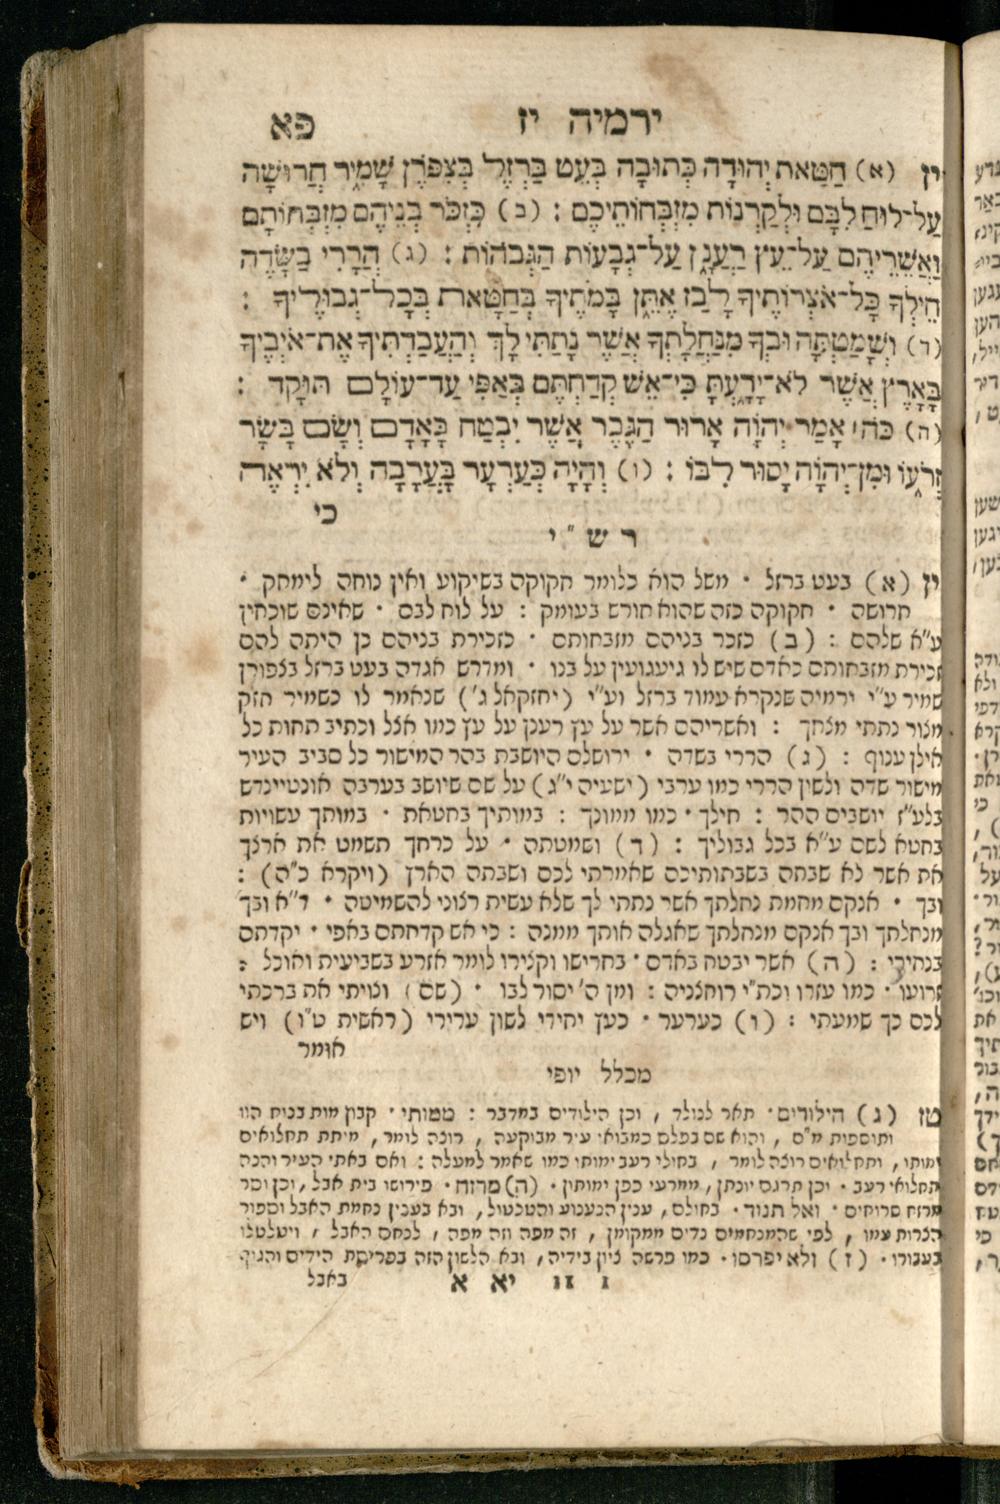 ירמיה יז פא
יז (א) חַטַּאת יְהוּדָה כְּתוּבָה בְּעֵט בַּרְזֶל בְּצִפֹּרֶן שָׁמִיר חֲרוּשָׁה
עַל־לוּחַ לִבָּם וּלְקַרְנוֹת מִזְבְּחוֹתֵיכֶם : (ב) כִּזְכֹּר בְּנֵיהֶם מִזְבְּחוֹתָם
וַאֲשֵׁרֵיהֶם עַל־עֵץ רַעֲנָן עַל־גְבָעוֹת הַגְּבֹהוֹת : (ג) הֲרָרִי בַּשָּׂדֶה
חֵילְךָ כָל־אֹצְרוֹתֶיךָ לָבַז אֶתֵּן בָּמֹתֶיךָ בְּחַטָּאת בְּכָל־גְּבוּלֶיךָ :
(ד) וְשָׁמַטְתָּה וּבְךָ מִנַּחֲלָתְךָ אֲשֶׁר נָתַתִּי לָךְ וְהַעֲבַדְתִּיךָ אֶת־אֹיְבֶיךָ
בָּאָרֶץ אֲשֶׁר לֹא־יָדָעְתָּ כִּי־אֵשׁ קְדַחְתֶּם בְּאַפִּי עַד־עוֹלָם תּוּקָד :
(ה) כֹּה אָמַר יְהוָה אָרוּר הַגֶּבֶר אֲשֶׁר יִבְטַח בָּאָדָם וְשָׂם בָּשָׂר
זְרֹעוֹ וּמִן־יְהוָה יָסוּר לִבּוֹ : (ו) וְהָיָה כְּעַרְעָר בָּעֲרָבָה וְלֹא יִרְאֶה
כי
רש"י
יז (א) בעט ברזל • משל הוא כלומר חקוקה בשיקוע ואין נוחה לימחק •
חרושה • חקוקה כזה שהוא חורש בעומק : על לוח לבם • שאינם שוכחין
ע"א שלהם : (ב) כזכר בניהם מזבחותם • כזכירת בניהם כן היתה להם
זכירת מזבחותם כאדם שיש לו גיעגועין על בנו • ומדרש אגדה בעט ברזל בצפורן
שמיר ע"י ירמיה שנקרא עמוד ברזל וע"י (יחזקאל ג') שנאמר לו כשמיר חזק
מצור נתתי מצחך : ואשריהם אשר על עץ רענן על עץ כמו אצל וכתיב תחות כל
אילן ענוף : (ג) הררי בשדה • ירושלם היושבת בהר המישור כל סביב העיר
מישור שדה ולשון הררי כמו ערבי (ישעיה י"ג) על שם שיושב בערבה אונטיינדש
בלע"ז יושבים ההר : חילך • כמו ממונך : במותיך בחטאת • במותך עשויות
בחטא לשם ע"א בכל גבוליך : (ד) ושמטתה • על כרחך תשמט את ארצך
את אשר לא שבתה בשבתותיכם שאמרתי לכם ושבתה הארץ (ויקרא כ"ה) :
ובך • אנקם מחמת נחלתך אשר נתתי לך שלא עשית רצוני להשמיטה • ד"א ובך
מנחלתך ובך אנקם מנחלתך שאגלה אותך ממנה : כי אש קדחתם באפי • יקדתם
בנחירי : (ה) אשר יבטח באדם • בחרישו וקצירו לומר אזרע בשביעית ואוכל :
זרועו • כמו עזרו וכת"י רוחצניה : ומן ה' יסור לבו • (שם) וצויתי את ברכתי
לכם כך שמעתי : (ו) כערער • כעץ יחידי לשון ערירי (ראשית ט"ו) ויש
אומר
מכלל יופי
טז (ג) הילודים • תאר לנולד , וכן הילודים במדבר : ממותי • קבוץ מות בנוח הוו
ותוספות מ"ם , והוא שם בפלם כמבואי עיר מבוקעה , רוצה לומר , מיתת תחלואים
ימותו , ותחלואים רוצה לומר , בחולי רעב ימותו כמו שאמר למעלה : ואם באתי העיר והנה
תחלואי רעב • וכן תרגם יונתן , ממרעי כפן ימותין • (ה) מרזח • פירושו בית אבל , וכן וסר
מרזח סרוחים • ואל תנוד • בחולם , ענין הנענוע והטלטול , ובא בענין נחמת האבל וספור
הצרות עמו , לפי שהמנחמים נדים ממקומן , זה מפה וזה מפה , לנחם האבל , ויטלטלו
בעבורו • (ז) ולא יפרסו • כמו פרשה ציון בידיה , ובא הלשון הזה בפריסת הידים והגוף
באבל